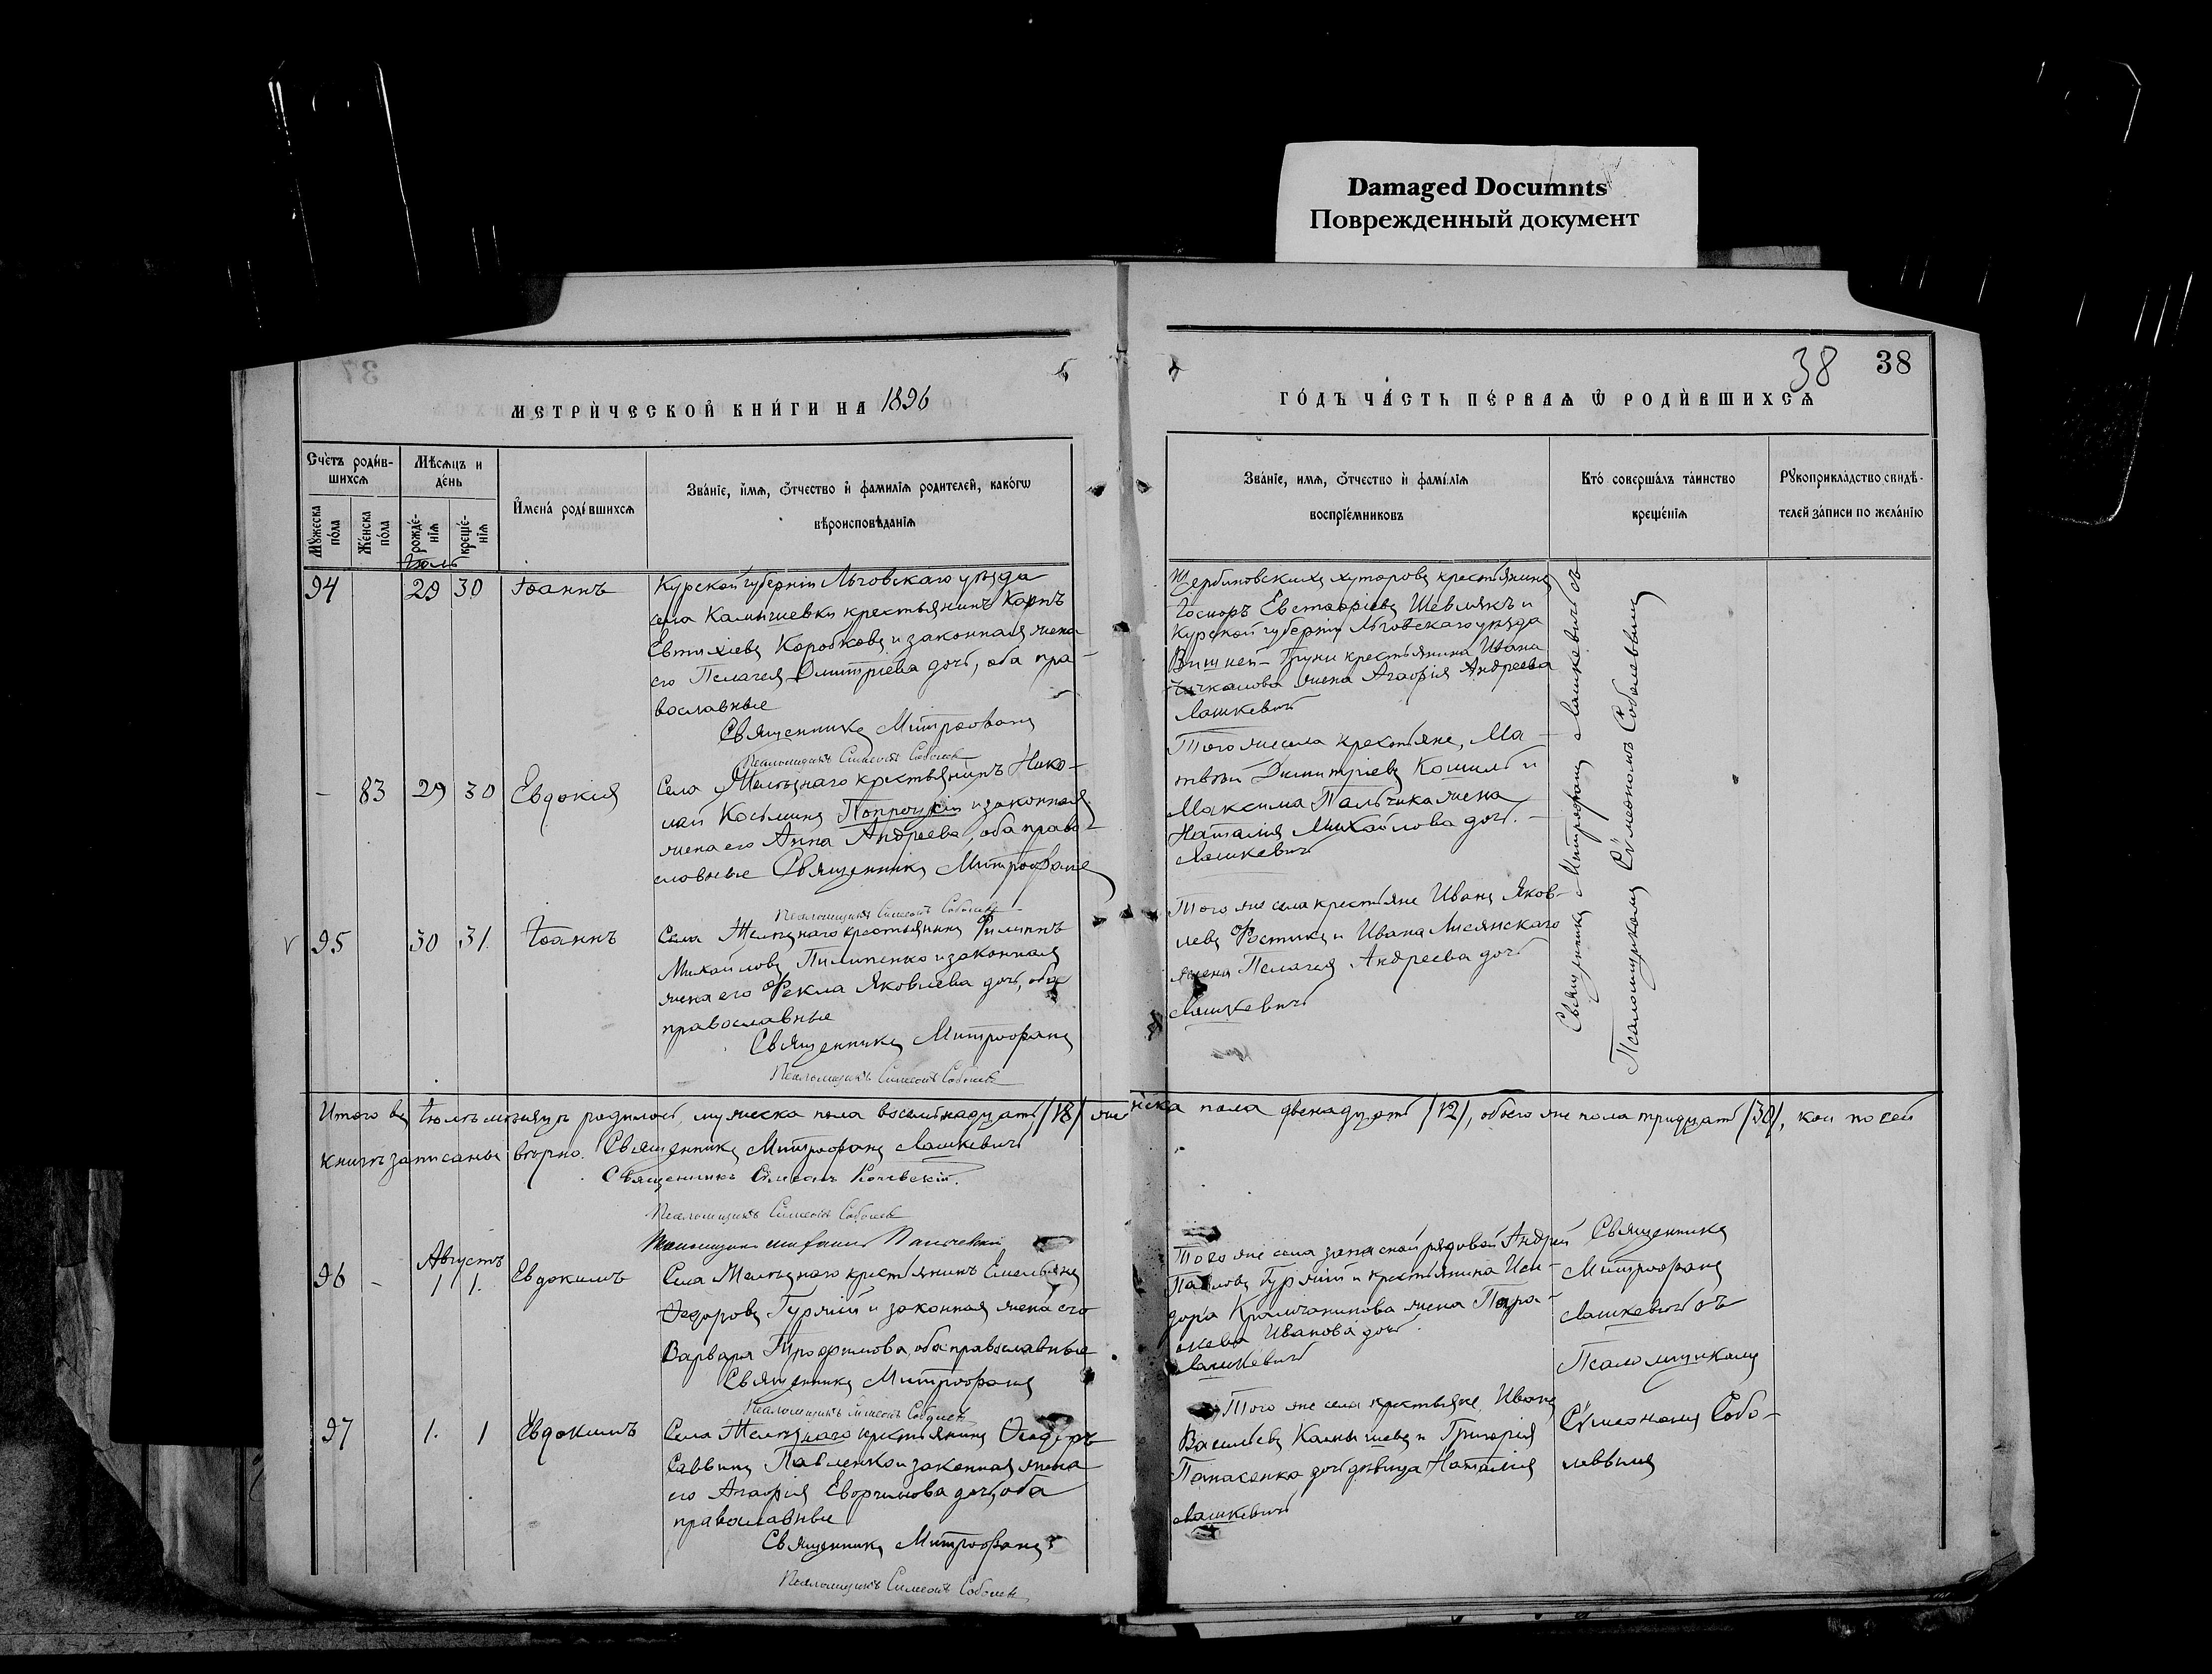 Damaged Documnts
Поврежденный документ
38
38
37
МЕТРИ́ЧЕСКОЙ КНИ́ГИ НА 1896
ГО́ДЪ ЧА́СТЬ ПЕ́РВАѦ Ѿ РОДИ́ВШИХСѦ
Счетъ роди́в-
шихсѧ
Мѣсѧцъ и
де́нь
Мꙋжеска
по́ла
Же́нска
по́ла
рожде́-
нїѧ
креще́-
нїѧ
Имена̀ роди́вшихсѧ
Зва́нїе, и́мѧ, о́тчество и҆ фамилїѧ родителей, како́гѡ
вѣроисповѣданїѧ
Зва́нїе, имѧ, о́тчество и҆ фами́лїѧ
воспрїе́мниковъ
Кто́ совершалъ та́инство
креще́нїѧ
Рꙋкоприкладство свидѣ-
телей записи по жела́нїю
Іюль
94
29 30
Іоаннъ
Курской губерніи Льговскаго уѣзда
села Камышевки крестьянинъ Карпъ
Евтихіевъ Коробковъ и законная жена
его Пелагея Дмитріева дочь, оба пра-
вославные
Священникъ Митрофанъ
Псаломщикъ Симеонъ Соболев
Щербиновскихъ хуторовъ крестьянинъ
Евстафіевъ Шевлякъ и
Курской губерніи Льговскаго уѣзда
крестьянина Ивана
Чичкалова жена Агафія Андреева
Лашкевичъ
Священникъ Митрофанъ Лашкевичъ съ
Псаломщикомъ Сѵмеономъ Соболевымъ
- 83 29 30 Евдокія
Села Желѣзнаго крестьянинъ Нико-
лай Косьминъ Попроцкій и законная
жена его Анна Андреева, оба право-
славные Священникъ Митрофанъ
Псаломщикъ Симеонъ Соболев
Того же села крестьяне, Ма-
твѣй Димитріевъ Кошиль и
Максима Пальчика жена
Наталія Михайлова дочь.
Лашкевичъ
95
30 31. Іоаннъ
Села Желѣзнаго крестьянинъ Филиппъ
Михайловъ Пилипенко и законная
жена его Фекла Яковлева дочь, оба
православные
Священникъ Митрофанъ
Псаломщикъ Симеонъ Соболев
Того же села крестьяне Иванъ Яков-
левъ Фостикъ и Ивана Лисянскаго
жена Пелагея Андреева дочь
Лашкевичъ
Итого въ Іюлѣ мѣсяцѣ родилось, мужеска пола восемьнадцать /18/ женска пола двенадцать /12/, обоего же пола тридцать /30/, кои по сей
книгѣ записаны вѣрно. Священникъ Митрофанъ Лашкевичъ
Священникъ Симеонъ
Псаломщикъ Симеонъ Соболев
Псаломщикъ
Августъ
96 - 1 1. Евдокимъ
Села Желѣзнаго крестьянинъ Емельянъ
Федоровъ Гуржій и законная жена его
Варвара Трофимова, оба православные
Священникъ Митрофанъ
Псаломщикъ Симеонъ Соболев
Того же села запасной рядовой Андрей
Павловъ Гуржій и крестьянина Иси-
дора Крамчанинова жена Пара-
скева Иванова дочь.
Лашкевичъ
Священникъ
Митрофанъ
Лашкевичъ съ
Псаломщикомъ
Сѵмеономъ Собо-
левымъ
97
1. 1 Евдокимъ
Села Желѣзнаго крестьянинъ Феодоръ
Саввинъ Павленко и законная жена
его Агафія Евфимова дочь, оба
православные
Священникъ Митрофанъ
Псаломщикъ Симеонъ Соболев
Того же села крестьяне, Иванъ
Васильевъ Камышевъ и Григорія
Панасенка дочь девица Наталія
Лашкевичъ